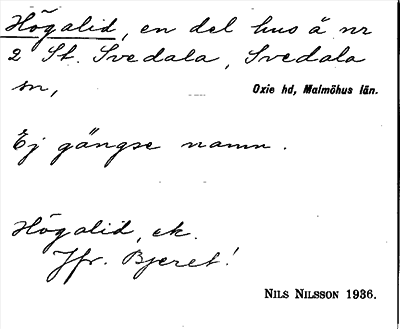 Högalid, en del hus å nr
2 St. Svedala, Svedala
sn, Oxie hd, Malmöhus län.
Ej gängse namn.
Högalid, ek.
Jfr. Bjeret!
NILS NILSSON 1936.